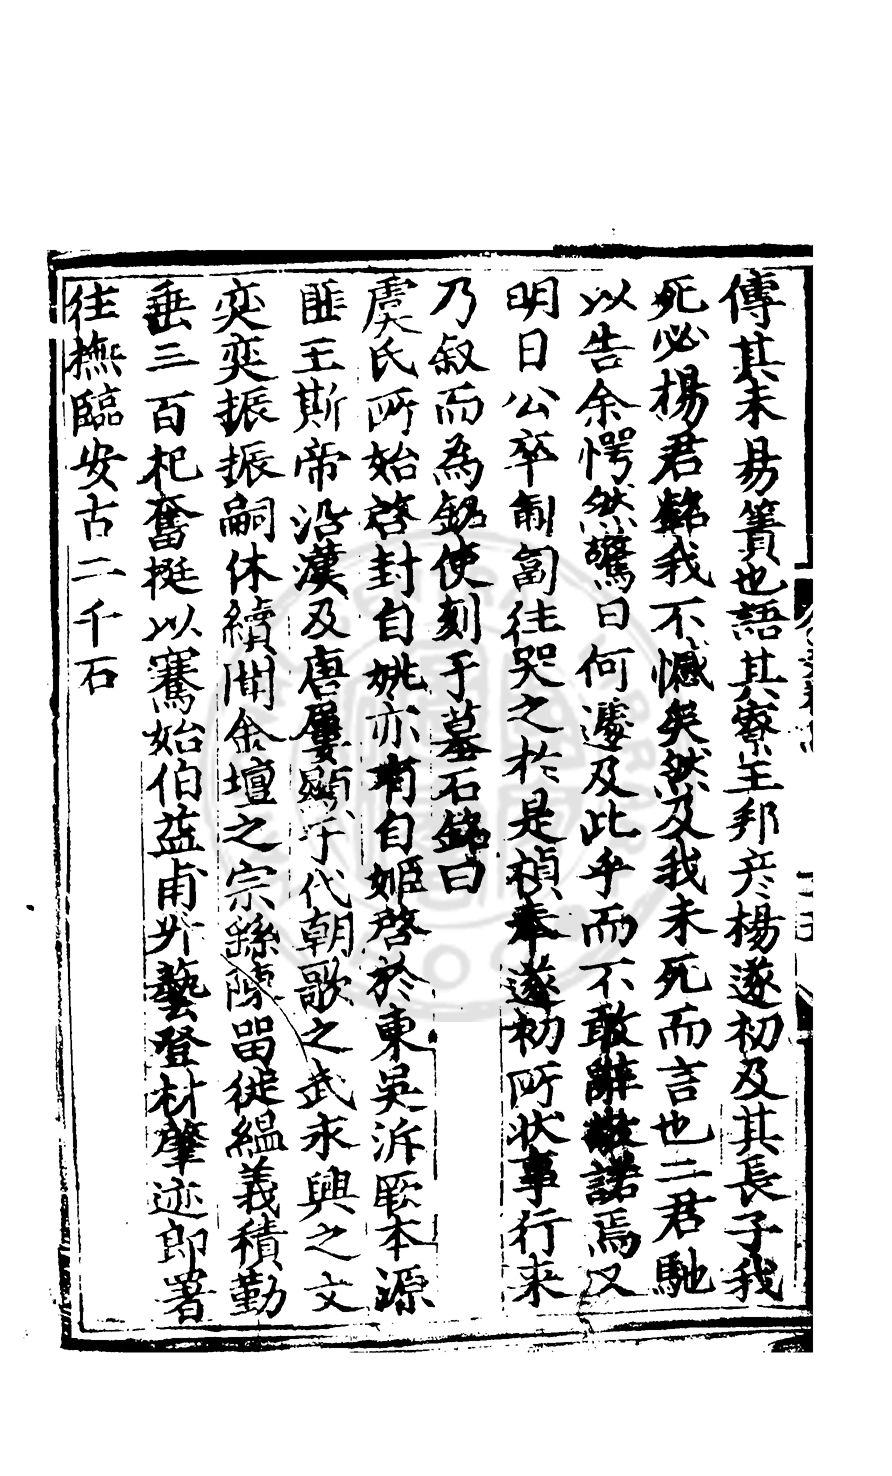 傳其未易簀也語其寮王邦彦楊遂初及其長子我
死必楊君銘我不憾矣然及我未死而言也二君馳
以告余愕然驚曰何遽及此乎而不敢辭敬諾焉又
明日公卒匍匐往哭之於是禎奉遂初所状事行来
乃叙而為銘使刻于墓石銘曰
虞氏所始啓封自姚亦有自姬啓於東吳泝厥本源
匪王斯帝沿漢及唐屢顯于代朝歌之武永興之文
奕奕振振嗣休續聞金壇之宗繇陳留徙緼義積勤
垂三百祀奮挺以騫始伯益甫外藝登材肇迹郎署
往撫臨安古二千石